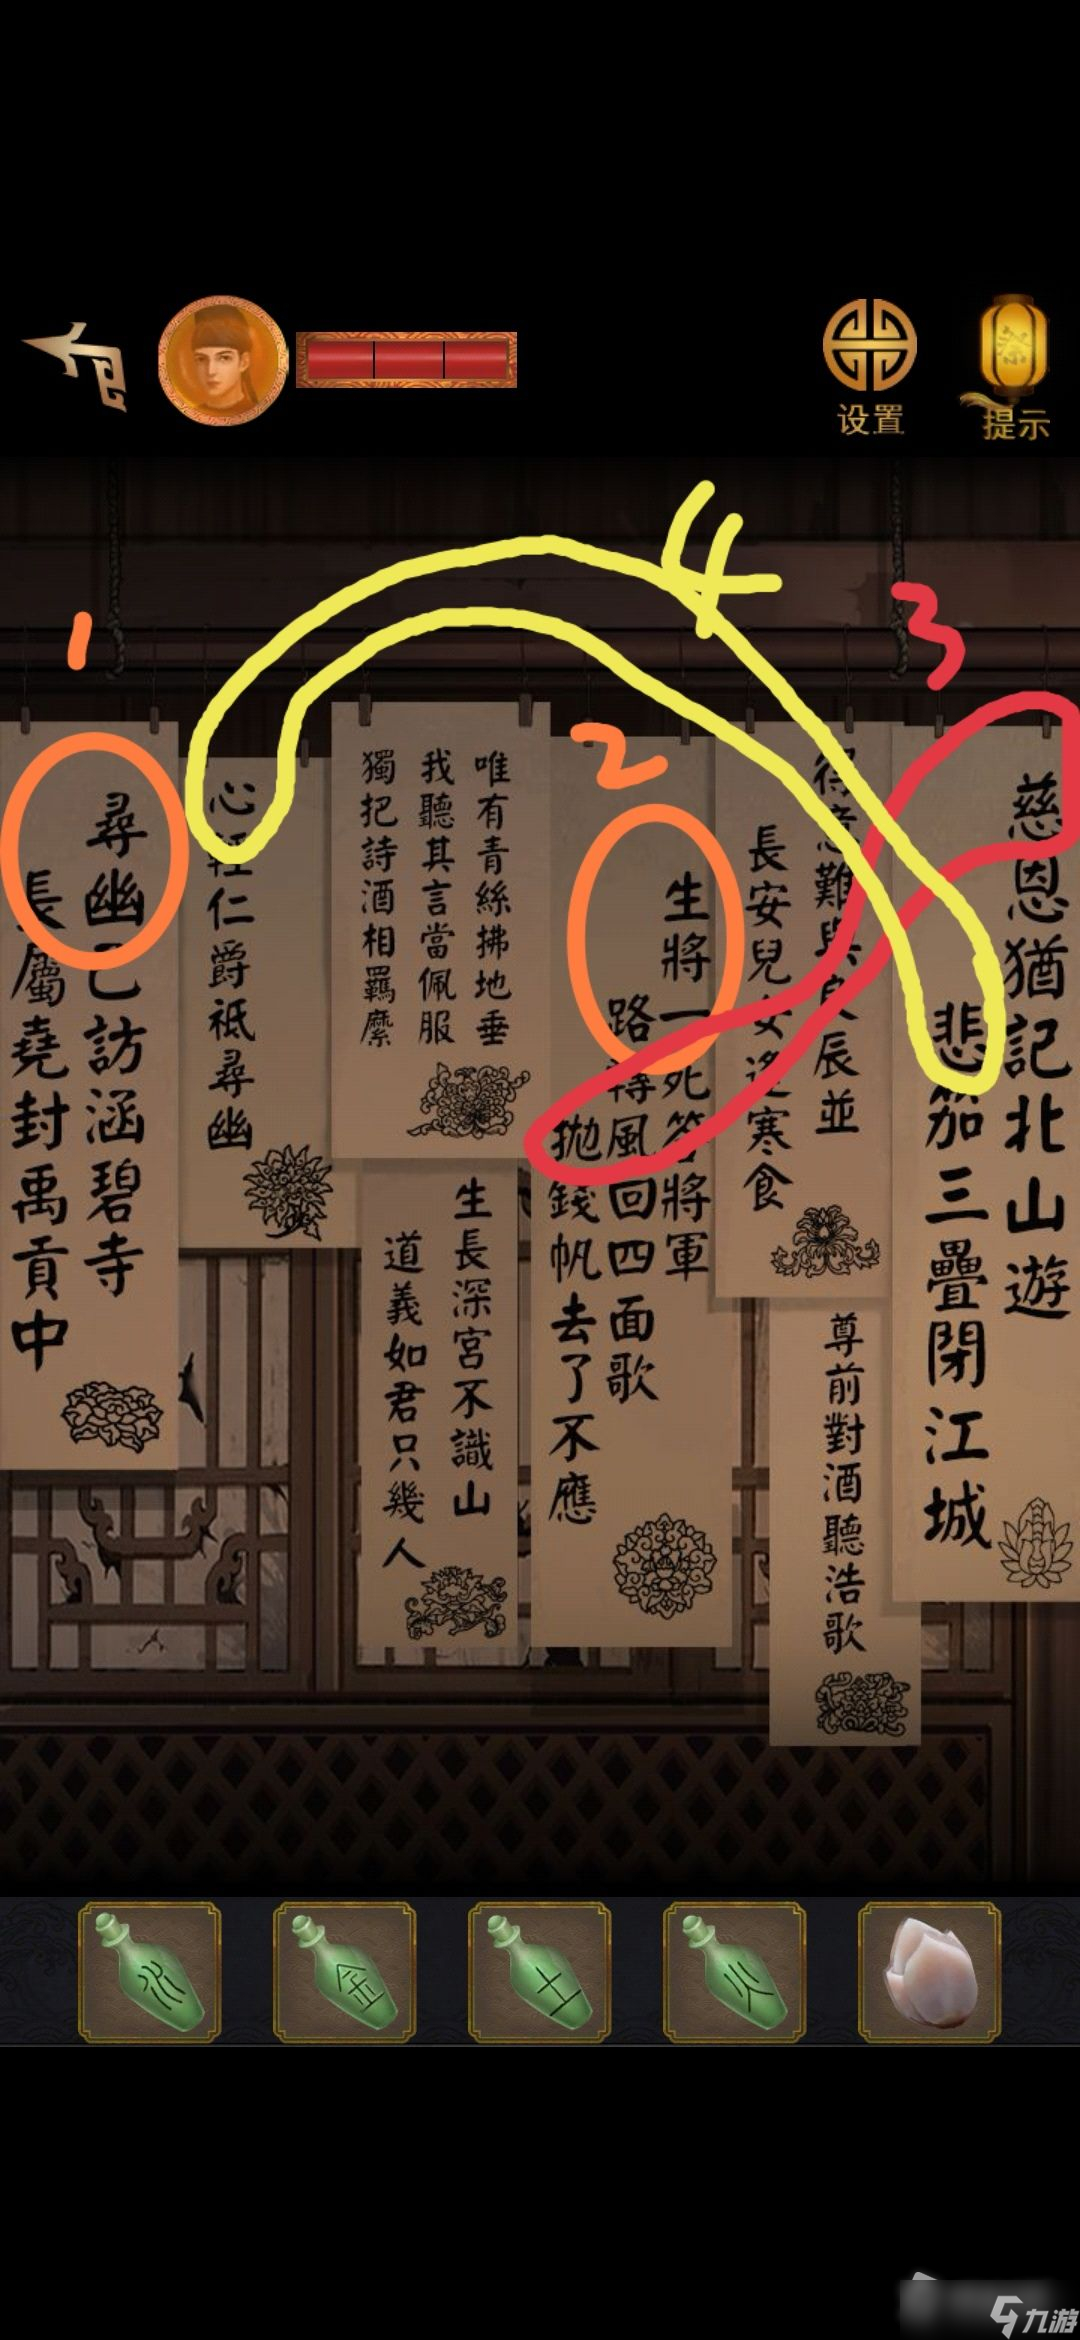 设置
提示
4
3
1
2
慈恩猶記北山遊
悲笳三疊閉江城
得意難與良辰並
長安兒女逢寒食
尊前對酒聽浩歌
生將一死答將軍
路轉風回四面歌
拋錢帆去了不應
唯有青絲拂地垂
我聽其言當佩服
獨把詩酒相羈縻
生長深宮不識山
道義如君只幾人
心輕仁爵祗尋幽
尋幽已訪涵碧寺
長屬堯封禹貢中
水
金
土
火
九游